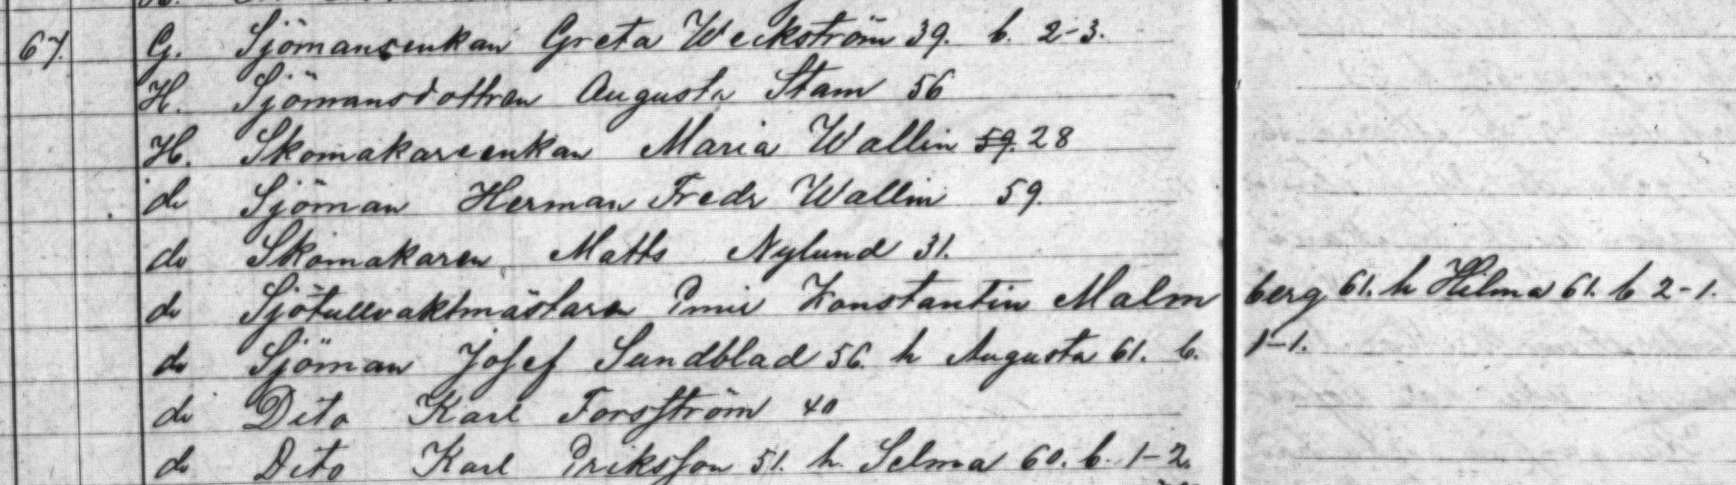 67. G. Sjömansenkan Greta Weckström 39. b. 2-3.
H. Sjömansdottren Augusta Stam 56
H. Skomakareenkan Maria Wallin 59. 28
do Sjöman Herman Fredr Wallin 59.
do Skomakaren Matts Nylund 31.
do Sjötullvaktmästare Emil Konstantin Malmberg 61. h Hilma 61. b 2-1.
do Sjöman Josef Sundblad 56. h Augusta 61. b. 1-1.
do Dito Karl Forsström 40
do Dito Karl Eriksson 51. h. Selma 60. b. 1-2.